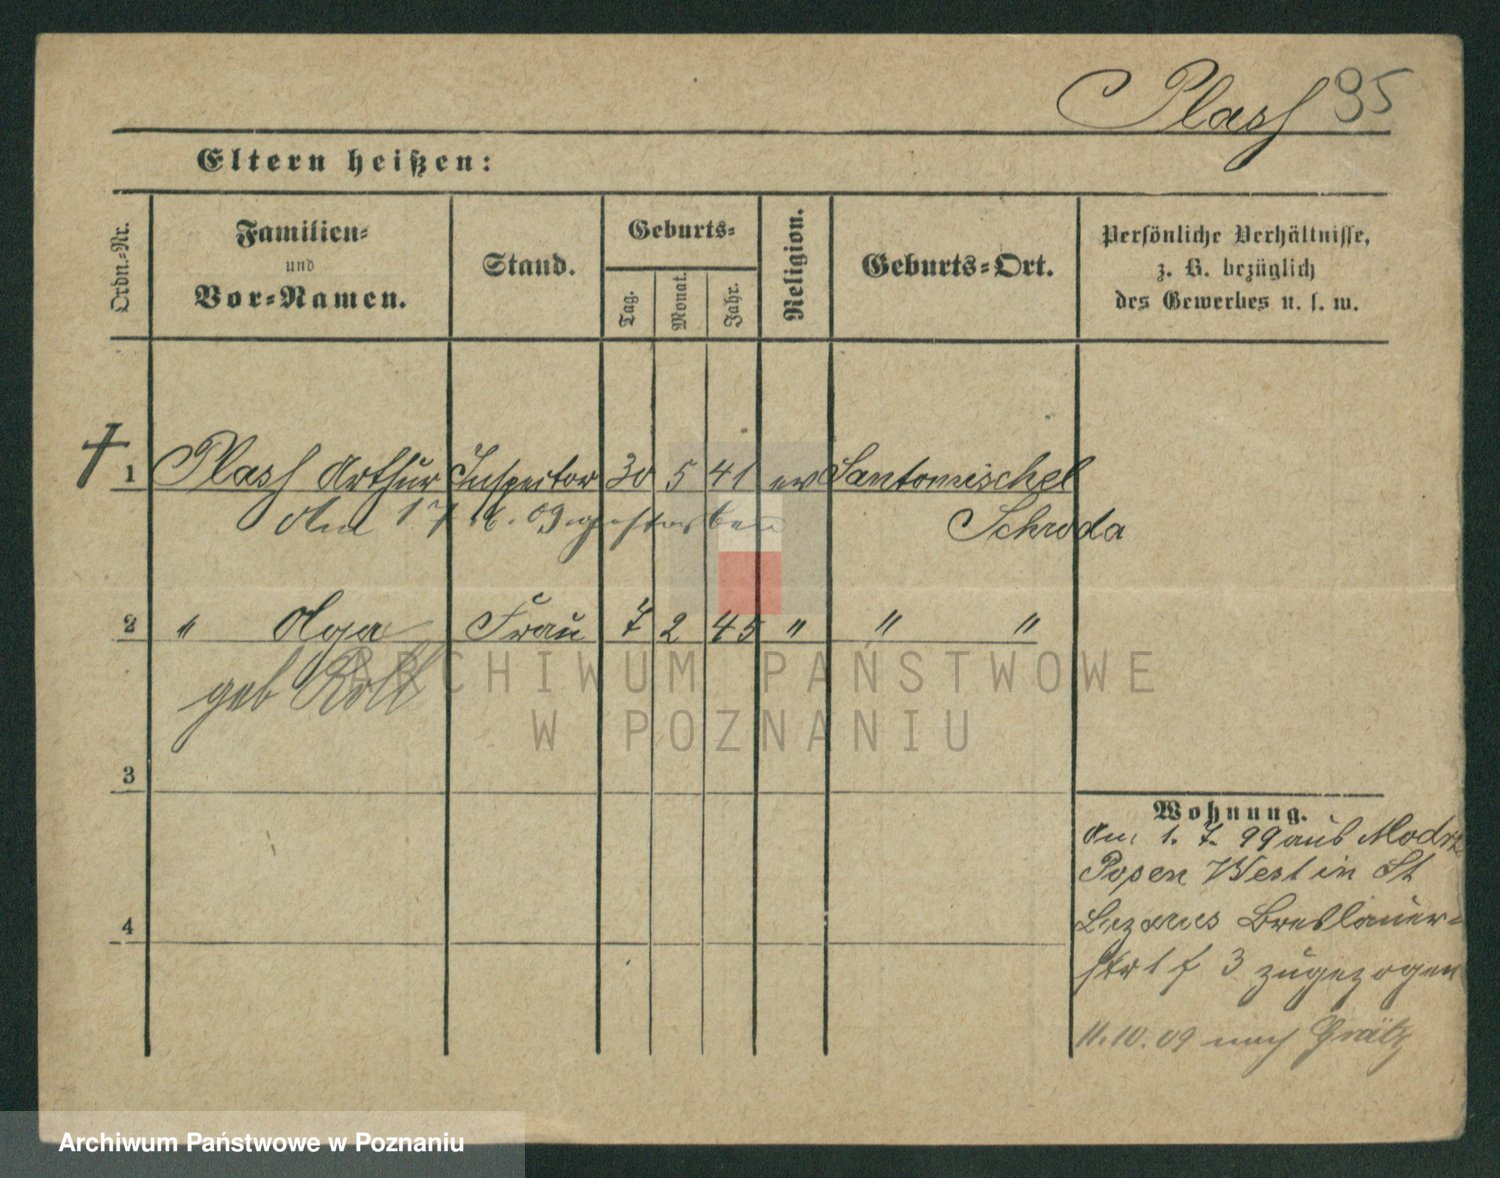 Plash 95
Eltern heißen:
Ordn.-Nr.
Familien-
und
Vor-Namen.
Stand.
Geburts-
Tag.
Monat.
Jahr.
Religion.
Geburts-Ort.
Persönliche Verhältnisse,
z. B. bezüglich
des Gewerbes u. s. w.
† 1 Plash Arthur Inspector 30 5 41 ev Santomischel
Am 17 09 gestorben Schroda
2 " Olga Frau 7 2 45 " " "
geb Roll
3
4
Wohnung.
Am 1. 7. 99 aus Modrz
Posen West in St
Lazarus Breslauer-
str 3 zugezogen
11.10.09 nach Grätz
ARCHIWUM PAŃSTWOWE
W POZNANIU
Archiwum Państwowe w Poznaniu